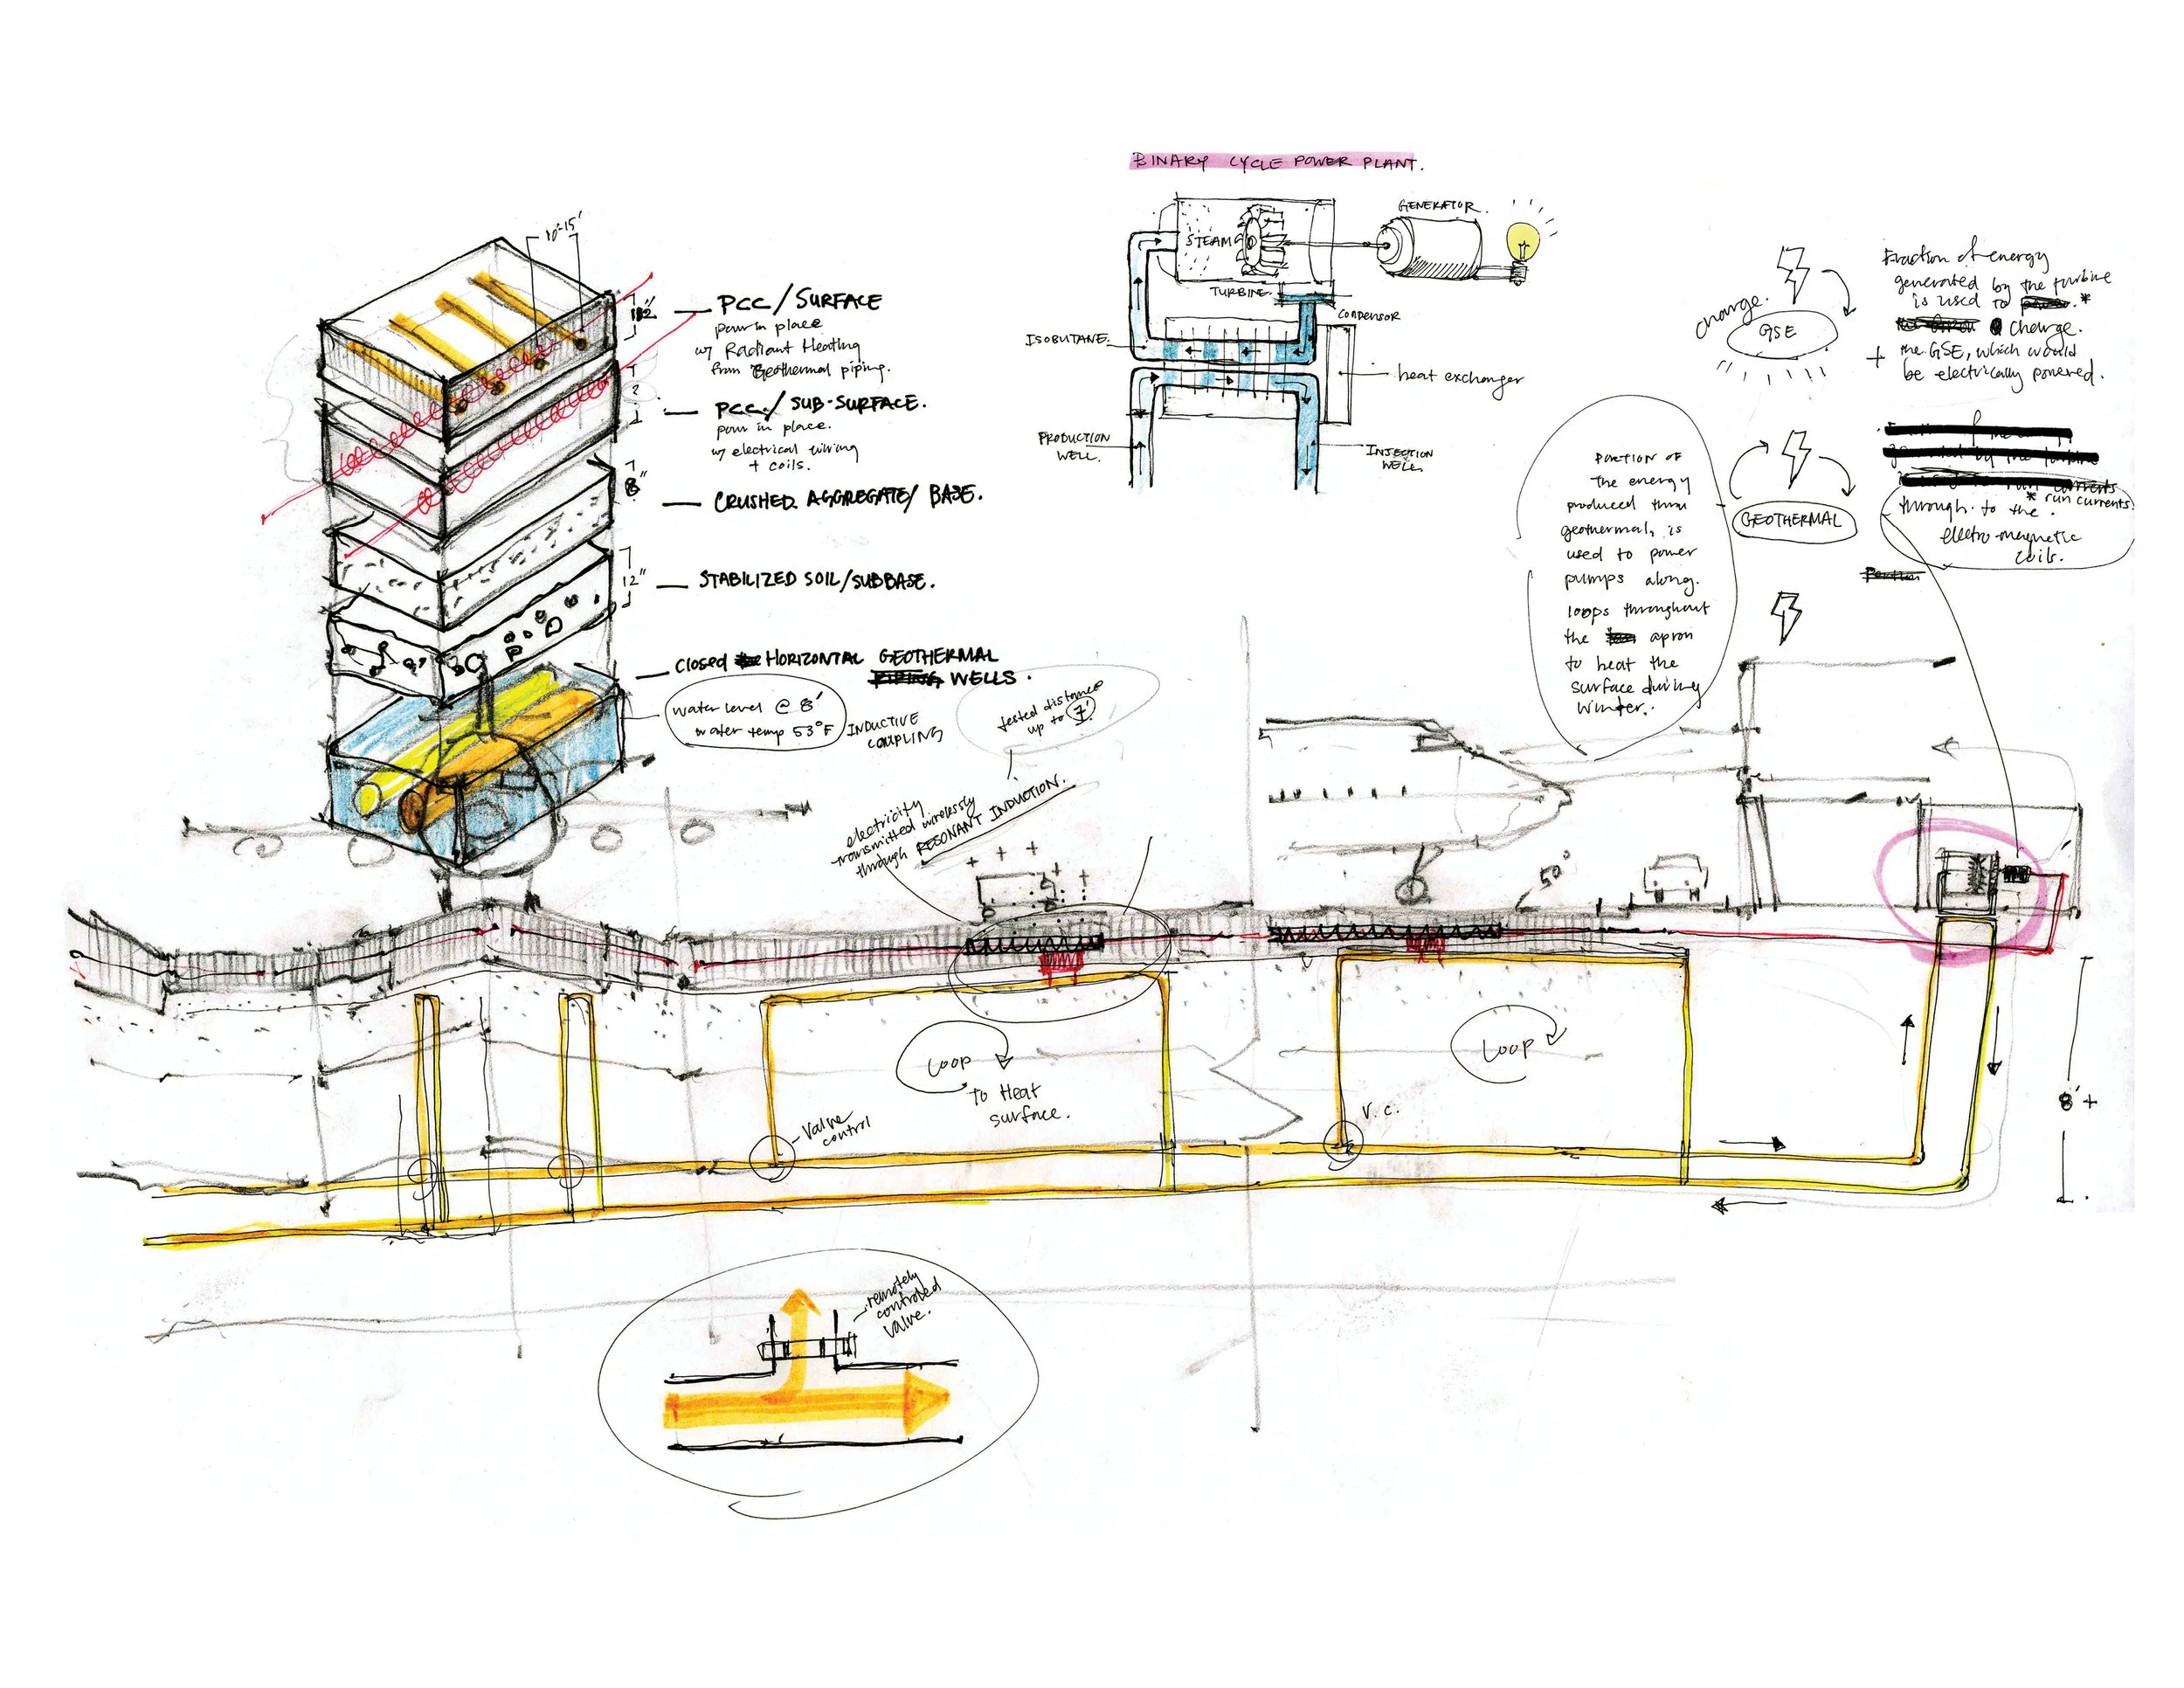 BINARY CYCLE POWER PLANT.
GENERATOR.
STEAM
TURBINE.
CONDENSOR
ISOBUTANE.
heat exchanger
PRODUCTION
WELL.
INJECTION
WELL
10'-15'
PCC/SURFACE
pour in place
w/ Radiant Heating
from Geothermal piping.
PCC./SUB-SURFACE.
pour in place.
w/ electrical wiring
+ coils.
8"
CRUSHED AGGREGATE/ BASE.
12"
STABILIZED SOIL/SUBBASE.
CLOSED HORIZONTAL GEOTHERMAL
PIPING WELLS.
water level @ 8'
water temp 53°F
INDUCTIVE
COUPLING
tested distance
up to 7'.
electricity
transmitted wirelessly
through RESONANT INDUCTION.
charge.
GSE
Fraction of energy
generated by the turbine
is used to *
charge.
+ the GSE, which would
be electrically powered.
PORTION OF
the energy
produced thru
geothermal, is
used to power
pumps along
loops throughout
the apron
to heat the
surface during
winter.
GEOTHERMAL
* run currents.
through to the
electro-magnetic
coils.
50°
LOOP
To Heat
surface.
LOOP
valve
control
V.C.
8'+
remotely
controlled
valve.